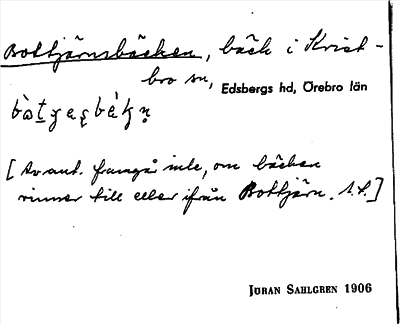 Bottjärnsbäcken, bäck i Krist-
bro sn, Edsbergs hd, Örebro län
[Av ant. framgår inte, om bäcken
rinner till eller ifrån Bottjärn. A.P.]
JÖRAN SAHLGREN 1906